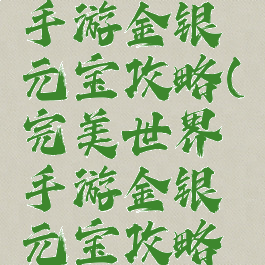 手游金银
元宝攻略(
完美世界
手游金银
元宝攻略